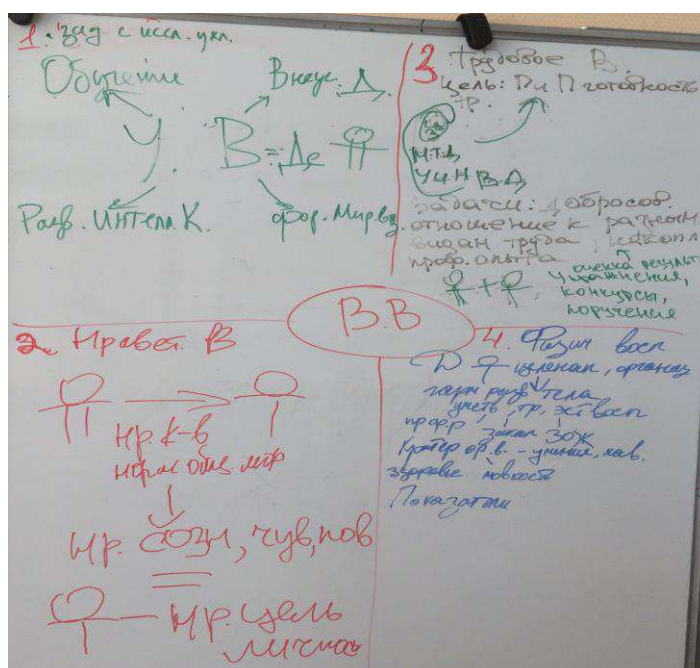 1. зад с иссл. укл.
Обучение Внеус. Д.
У. В = Де
Разв. Интелл. К. Фор. Мировоз.
3 Трудовое В.
Цель: П и П готовность
тр.
М.Т.Д,
Уч и Н В.Д,
Задачи: Добросов.
отношение к разным
видам труда, накопл
проф. опыта
оценка результ
упражнения,
конкурсы,
поручения
В.В
2. Нравст. В
нр. к-в
норм общ. мор
нр. созн, чув, пов
нр. цель
личнос
4. Физич восп
целенап, организ
гарм разв тела
умств, тр, эст восп
закал ЗОЖ
здоровье ловкость
Показатели